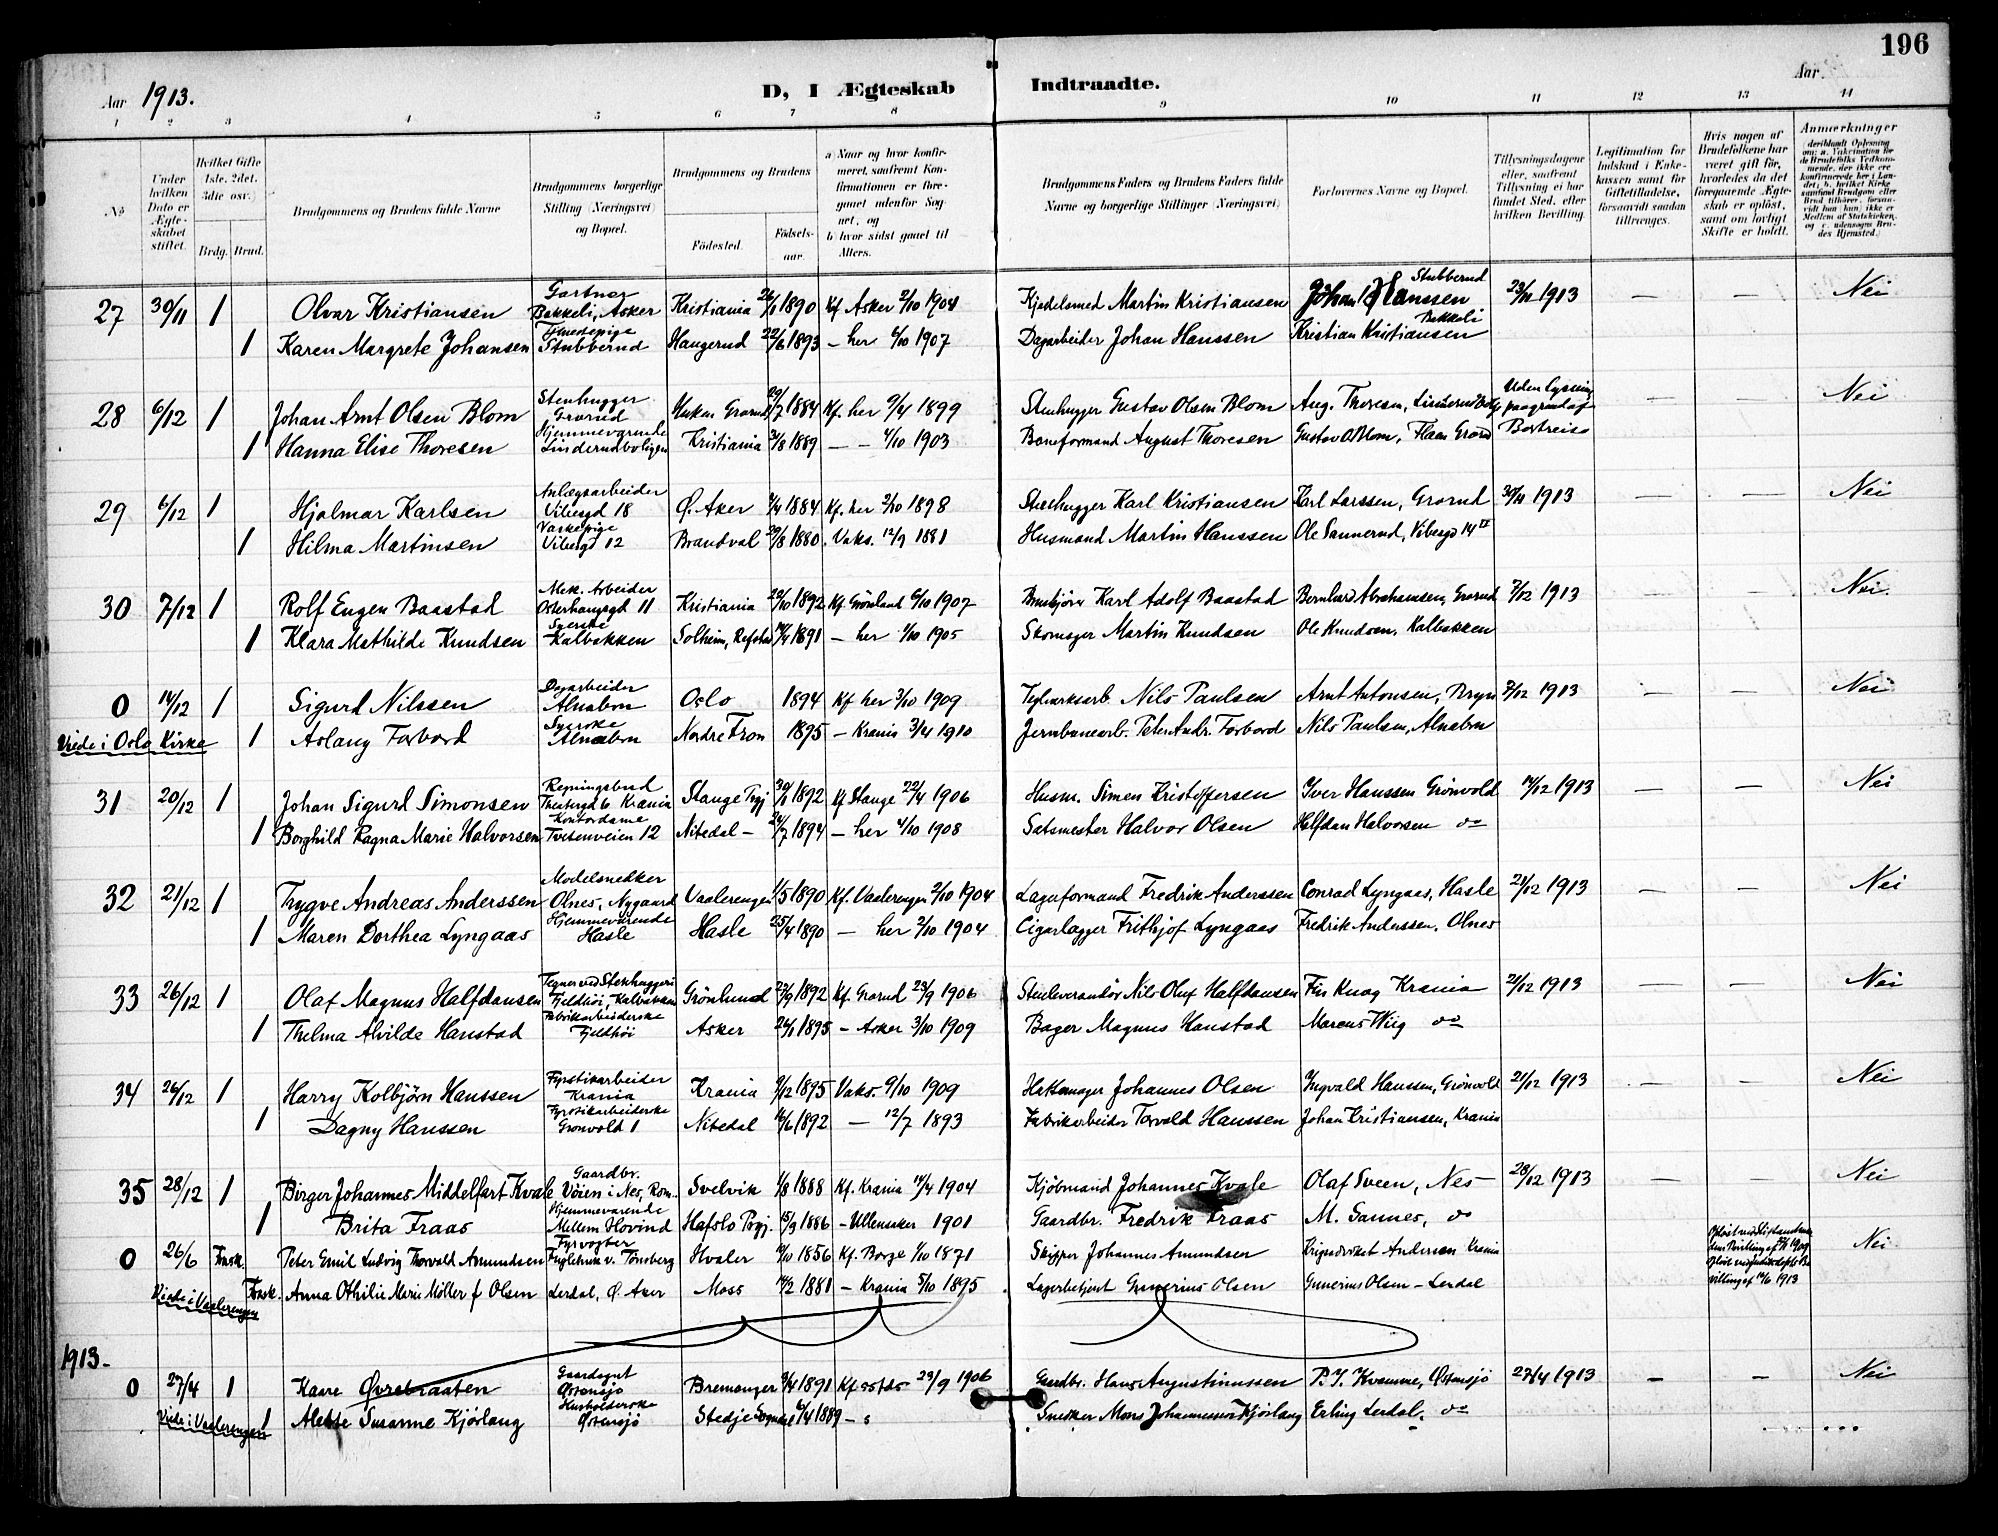 196
Aar 1913.
D, I Ægteskab Indtraadte.
Aar
1 2 3 4 5 6 7 8 9 10 11 12 13 14
No
Under hvilken Dato er Ægteskabet stiftet.
Hvilket Gifte 1ste. 2det. 3die osv.)
Brdg. Brud.
Brudgommens og Brudens fulde Navne
Brudgommens borgerlige Stilling (Næringsvei) og Bopæl.
Brudgommens og Brudens
Födested. Födsels-aar.
a) Naar og hvor konfirmeret, saafremt Konfirmationen er foregaaet udenfor Sognet, og
b) hvor sidst gaaet til Alters.
Brudgommens Faders og Brudens Faders fulde Navne og borgerlige Stillinger (Næringsvei)
Forlovernes Navne og Bopæl.
Tillysningsdagene eller, saafremt Tillysning ei har fundet Sted, efter hvilken Bevilling.
Legitimation for Indskud i Enkekassen samt for Giftetilladelse, forsaavidt saadan tiltrænges.
Hvis nogen af Brudefolkene har været gift för, hvorledes da det foregaaende Ægteskab er oplöst, samt om lovligt Skifte er holdt.
Anmærkninger
27 30/11 1 Olvar Kristiansen Gartner Bakkeli, Asker Kristiania 1890 Kf Asker 2/10 1904 Kjedelsmed Martin Kristiansen Johan Hanssen Stubberud 23/11 1913 — — Nei
1 Karen Margrete Johansen Stubberud Haugerud 22/6 1893 — her 6/10 1907 Dagarbeider Johan Hanssen Kristian Kristiansen Bekkeli
28 6/12 1 Johan Arnt Olsen Blom Stenhugger Grorud Grorud 29/7 1884 Kf. her 9/4 1899 Stenhugger Gustav Olsen Blom Aug. Thoresen, Uden Lysning paagrund af Bortreise — — Nei
1 Hanna Elise Thoresen Hjemmeværende Linderudboligen Kristiania 1889 — — 4/10 1903 Baneformand August Thoresen Gustav O Blom, Flaen Grorud
29 6/12 1 Hjalmar Karlsen Anlægsarbeider Vibesgd 18 Ö. Aker 1884 Kf. her 2/10 1898 Stenhugger Karl Kristiansen Karl Larssen, Grorud 30/11 1913 — — Nei
1 Hilma Martinsen Vaskepige Vibesgd 12 Brandval 1880 Vaks. 12/9 1881 Husmand Martin Hanssen Ole Sannerud, Vibesgd 14 IV
30 7/12 1 Rolf Eugen Baastad Mek. Arbeider Osterhausgd 11 Kristiania 1892 Kf. Grönland 6/10 1907 Karl Adolf Baastad Bernhard Abrahamsen, Grorud 7/12 1913 — — Nei.
1 Klara Mathilde Knudsen Syerske Kalbakken Solheim, 1891 — her 1/10 1905 Skomager Martin Knudsen Ole Knudsen, Kalbakken
0 14/12 1 Sigurd Nilssen Dagarbeider Alnabru Oslo 1894 Kf her 3/10 1909 Teglverksarb. Nils Paulsen Arnt Antonsen, Bryn 7/12 1913 — — Nei
Viede i Oslo Kirke 1 Aslaug Forbord Syerske Alnabru Nordre Fron 1895 — Krania 3/4 1910 Jernbanearb. Peter Andr. Forbord Nils Paulsen, Alnabru
31 20/12 1 Johan Sigurd Simonsen Regningsbud Theatergd 6 Krania Stange Pgj 1892 Kf Stange 22/4 1906 Husm. Simen Kristoffersen Iver Hanssen Grönvold 14/12 1913 — — Nei
1 Borghild Ragna Marie Halvorsen Kontordame Tvetenveien 12 Nitedal — 1894 — her 4/10 1908 Satsmester Halvor Olsen Halfdan Halvorsen do
32 21/12 1 Trygve Andreas Anderssen Modelsnedker Olnes, Nygaard Vaalerengen 1/5 1890 Kf. Vaalerengen 2/10 1904 Lagerformand Fredrik Anderssen Conrad Lyngaas, Hasle 21/12 1913 — — Nei
1 Maren Dorthea Lyngaas Hjemmeværende Hasle Hasle 25/4 1890 — her 2/10 1904 Cigarlægger Frithjof Lyngaas Fredrik Anderssen, Olnes
33 26/12 1 Olaf Magnus Halfdansen Tegner ved Stenhuggeri Fjeldhöi, Kalbakken Grönlund 27/9 1892 Kf. Grorud 23/9 1906 Stenleverandör Nils Oluf Halfdansen Fin Knag Krania 21/12 1913 — — Nei
1 Thelma Alvilde Hanstad Fabrikarbeiderske Fjeldhöi Asker 1895 — Asker 3/10 1909 Bager Magnus Hanstad Marcus Wiig do
34 26/12 1 Harry Kolbjörn Hanssen Fyrstikarbeider Krania Krania 1895 Vaks. 9/10 1909 Johannes Olsen Ingvald Hanssen, Grönvold 21/12 1913 — — Nei
1 Dagny Hanssen Fyrstikarbeiderske Grönvold 1 Nitedal 1892 — 12/7 1893 Fabrikarbeider Torvald Hanssen Johan Kristiansen, Krania
35 28/12 1 Birger Johannes Middelfart Kvale Gaardbr. Vöien i Nes, Rom. Svelvik 1/8 1888 Kf. Krania 14/4 1904 Kjöbmand Johannes Kvale Olaf Sveen, Nes — 28/12 1913 — — Nei
1 Brita Fraas Hjemmeværende Mellem Hovind Hafslo Pgj. 15/9 1886 — Ullensaker 1901 Gaardbr. Fredrik Fraas M. Sannes, do
0 26/6 Frask. Peter Emil Ludvig Thorvald Amundsen Fyrvogter Fuglehuk v. Tönsberg Hvaler 1856 Kf. Borge 1/10 1871 Skipper Johannes Amundsen Andersen Krania Nei
Viede i Vaalerengen Frask. Anna Othilie Marie Möller f Olsen Lerdal, Ö. Aker Moss 1881 — Krania 5/10 1895 Lagerbetjent Gunerius Olsen Gunerius Olsen — Lerdal
1913.
0 27/4 1 Kaare Övrebraaten Gaardsgut Östensjö Bremanger 1891 Kf 23/9 1906 Gaardbr. Hans Augustinussen P. I. Kvamme, Östensjö 27/4 1913 — — Nei
Viede i Vaalerengen 1 Alette Susanne Kjörlaug Husholderske Östensjö Stedje Sogndal 1889 — Snedker Mons Johannessen Kjörlaug Erling Lerdal, do